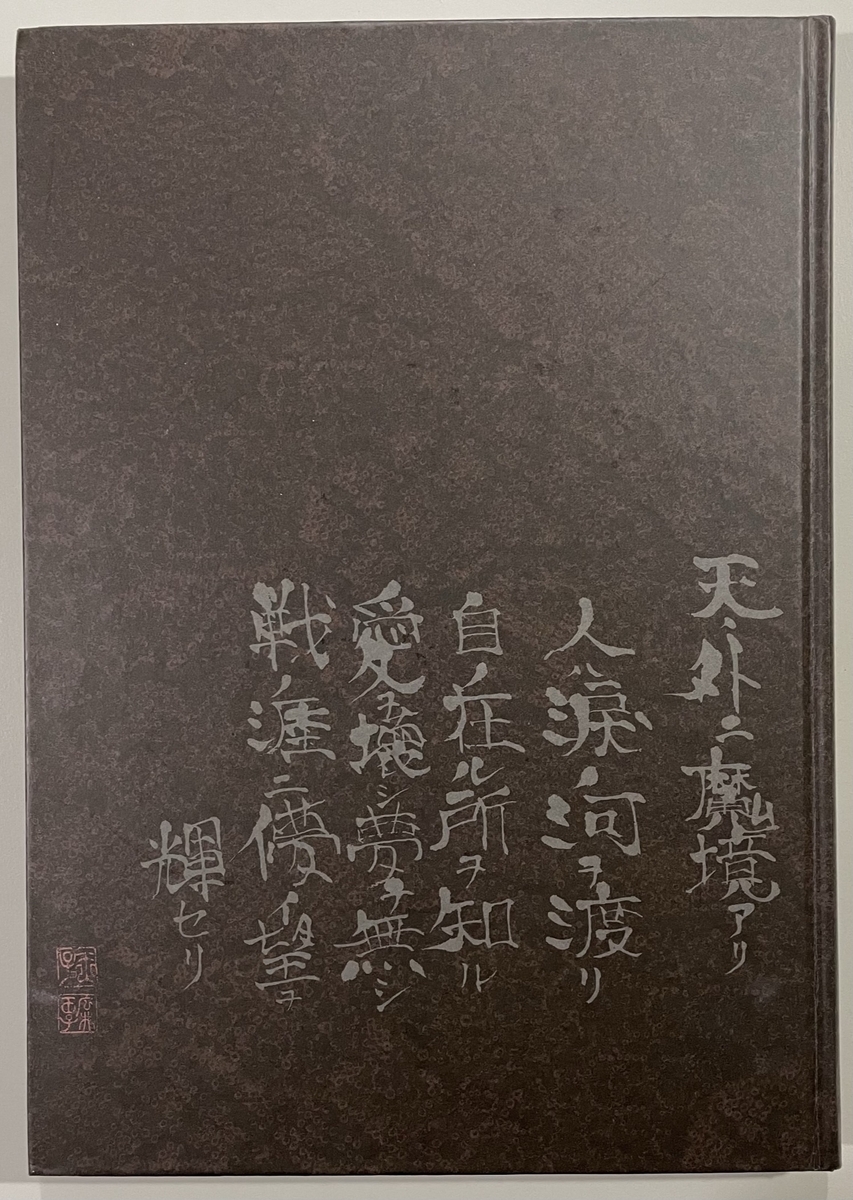 天外ニ魔境アリ
人ハ涙河ヲ渡リ
自在ル所ヲ知ル
愛ヲ壊シ夢ヲ無シ
戦涯ニ儚イ望ヲ
輝セリ